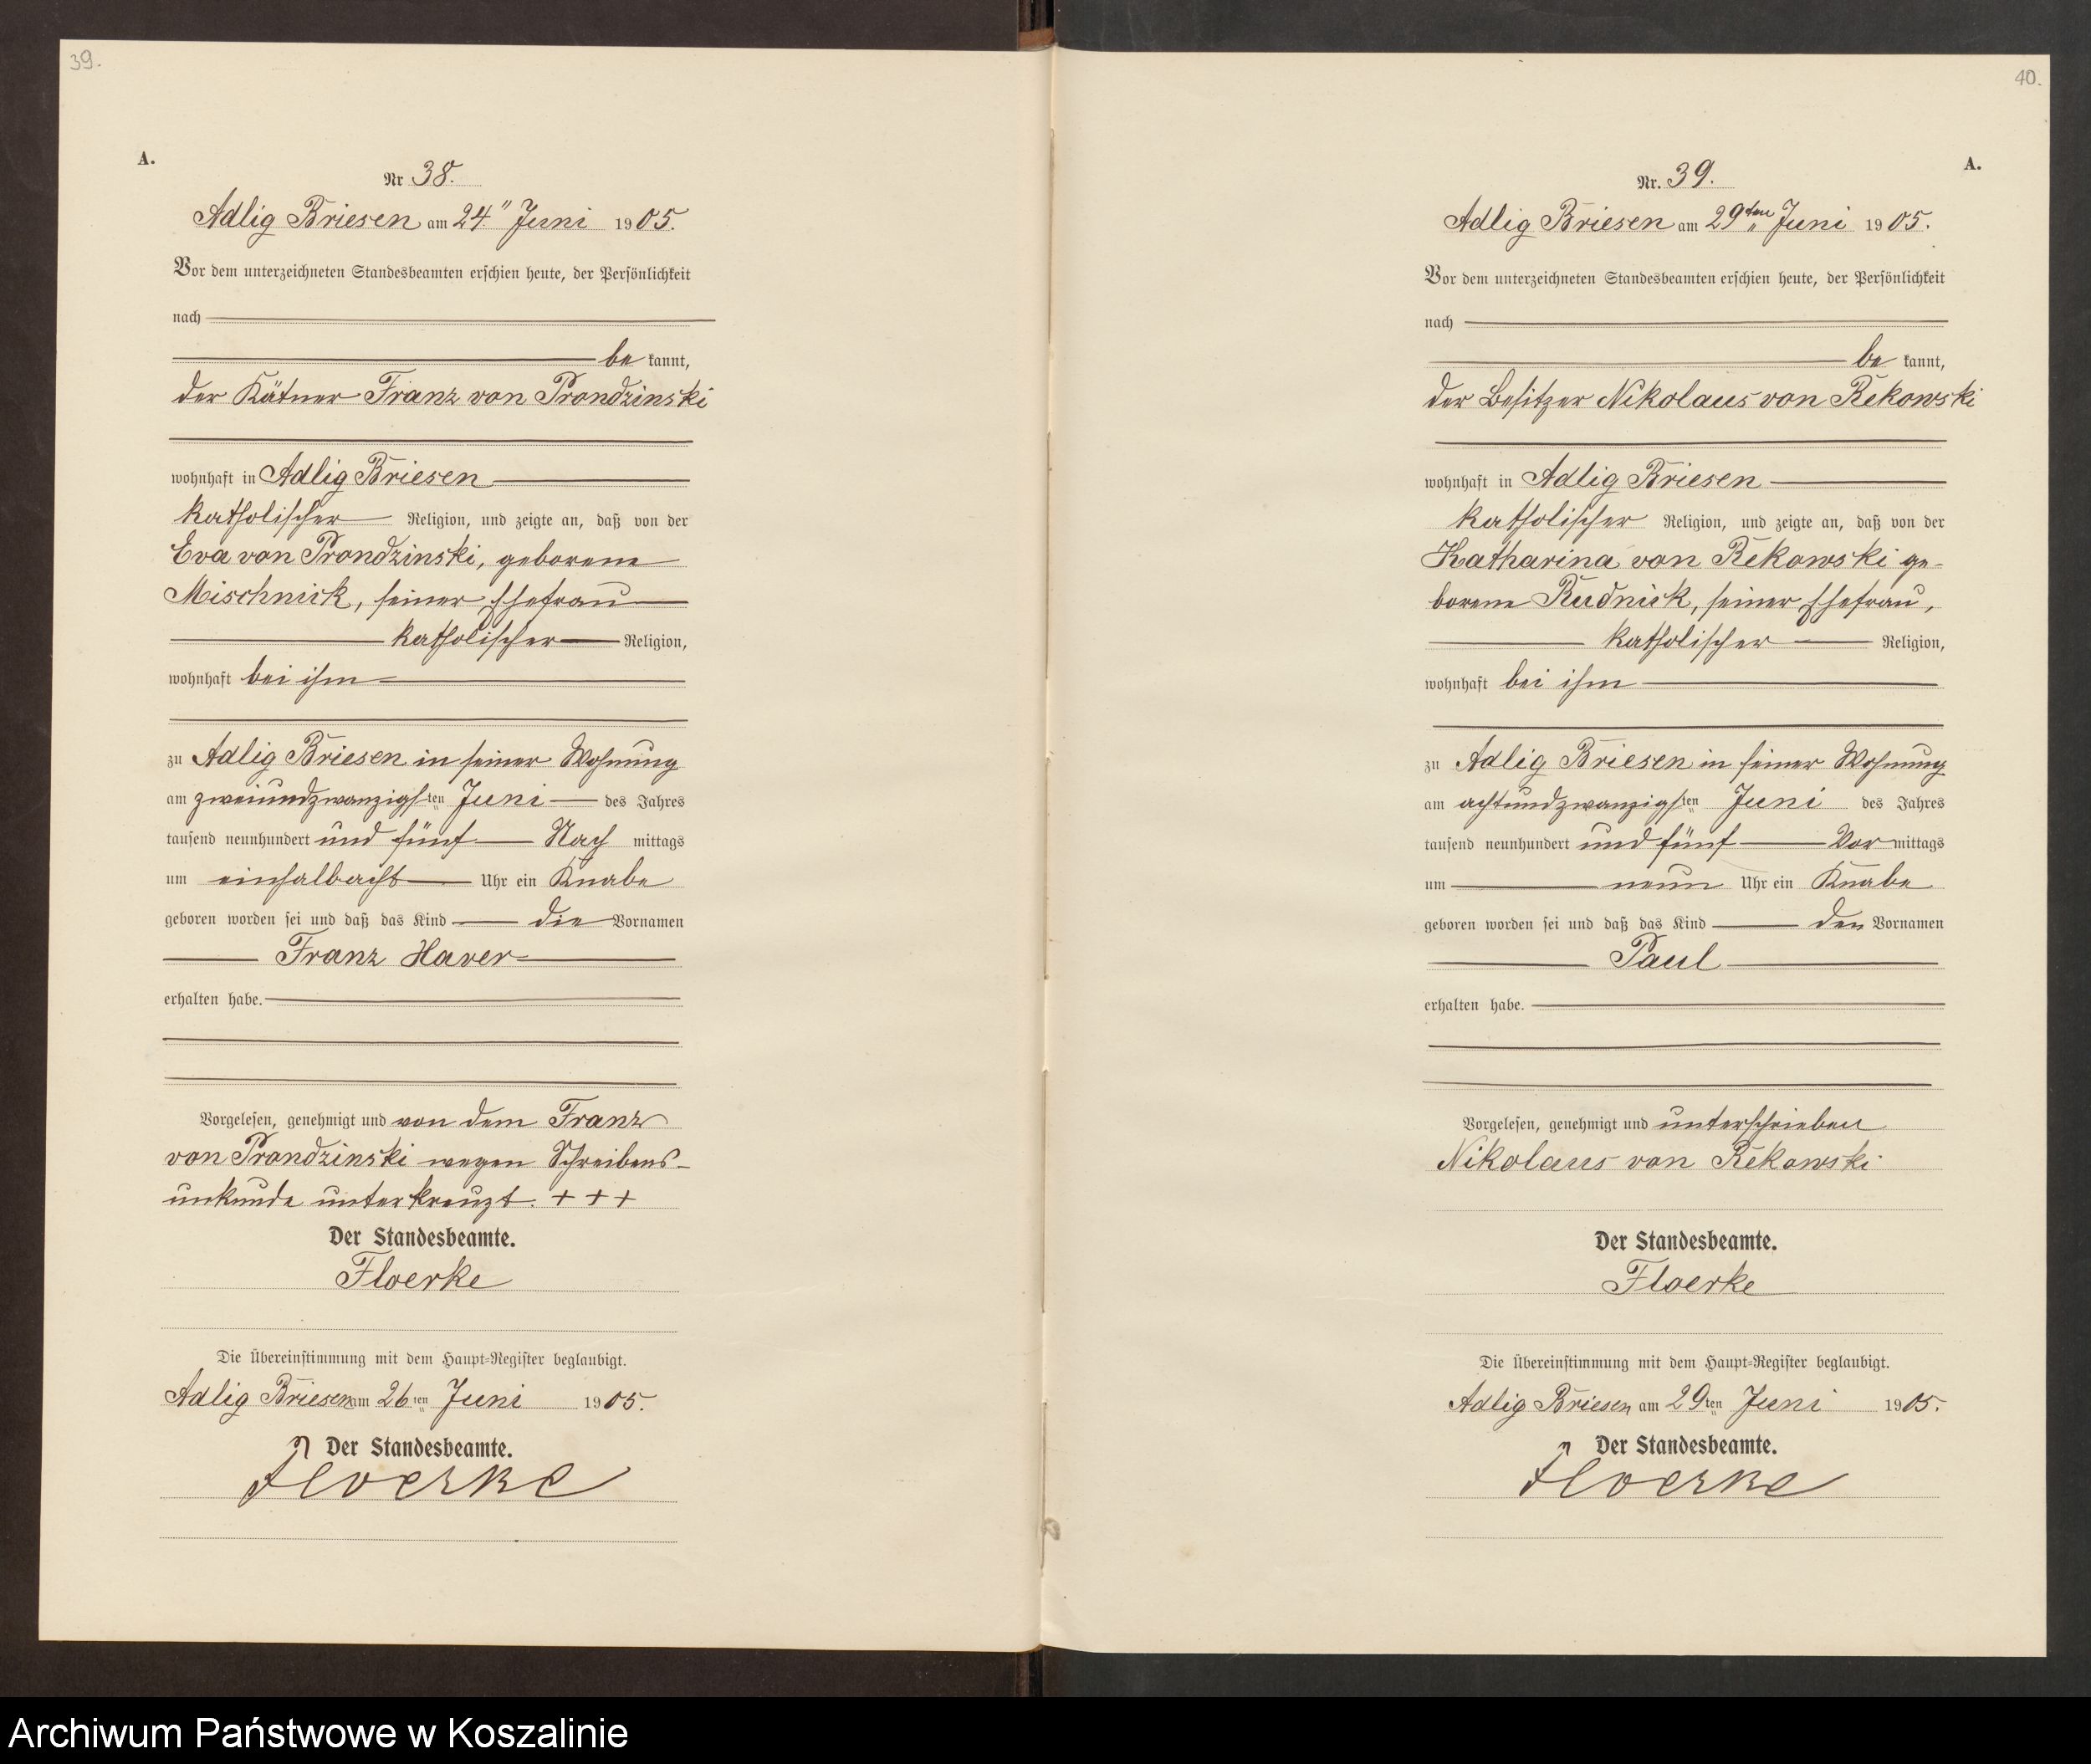 39.
A.
Nr 38.
Adlig Briesen am 24." Juni 1905.
Vor dem unterzeichneten Standesbeamten erschien heute, der Persönlichkeit
nach
be kannt,
der Kätner Franz von Prondzinski
wohnhaft in Adlig Briesen
katholischer Religion, und zeigte an, daß von der
Eva von Prondzinski, geborene
Mischnick, seiner Ehefrau
katholischer Religion,
wohnhaft bei ihm
zu Adlig Briesen in seiner Wohnung
am zweiundzwanzigsten Juni des Jahres
tausend neunhundert und fünf Nach mittags
um einhalbacht Uhr ein Knabe
geboren worden sei und daß das Kind die Vornamen
Franz Xaver
erhalten habe.
Vorgelesen, genehmigt und von dem Franz
von Prondzinski wegen Schreibens-
unkunde unterkreuzt. + + +
Der Standesbeamte.
Floerke
Die Übereinstimmung mit dem Haupt-Register beglaubigt.
Adlig Briesen am 26ten Juni 1905.
Der Standesbeamte.
Floerke
40.
A.
Nr. 39.
Adlig Briesen am 29ten Juni 1905.
Vor dem unterzeichneten Standesbeamten erschien heute, der Persönlichkeit
nach
be kannt,
der Besitzer Nikolaus von Rekowski
wohnhaft in Adlig Briesen
katholischer Religion, und zeigte an, daß von der
Katharina von Rekowski ge-
borene Rudnick, seiner Ehefrau,
katholischer Religion,
wohnhaft bei ihm
zu Adlig Briesen in seiner Wohnung
am achtundzwanzigsten Juni des Jahres
tausend neunhundert und fünf Vor mittags
um neun Uhr ein Knabe
geboren worden sei und daß das Kind den Vornamen
Paul
erhalten habe.
Vorgelesen, genehmigt und unterschrieben
Nikolaus von Rekowski
Der Standesbeamte.
Floerke
Die Übereinstimmung mit dem Haupt-Register beglaubigt.
Adlig Briesen am 29ten Juni 1905.
Der Standesbeamte.
Floerke
Archiwum Państwowe w Koszalinie